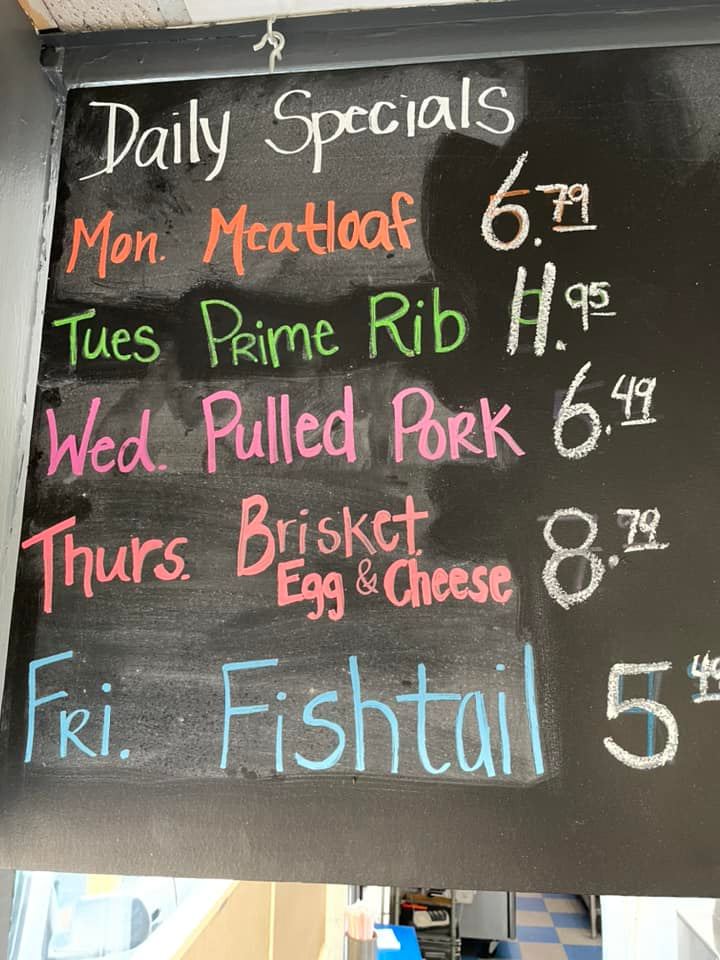 Daily Specials
Mon. Meatloaf 6.79
Tues Prime Rib 11.95
Wed. Pulled Pork 6.49
Thurs. Brisket 8.79
Egg & Cheese
Fri. Fishtail 5